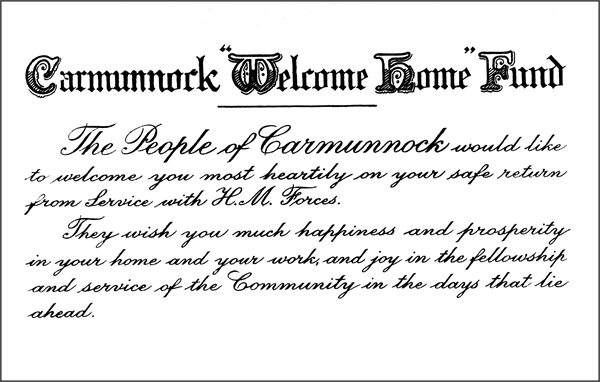 Carmunnock "Welcome Home" Fund
The People of Carmunnock would like
to welcome you most heartily on your safe return
from Service with H.M. Forces.
They wish you much happiness and prosperity
in your home and your work, and joy in the fellowship
and service of the Community in the days that lie
ahead.